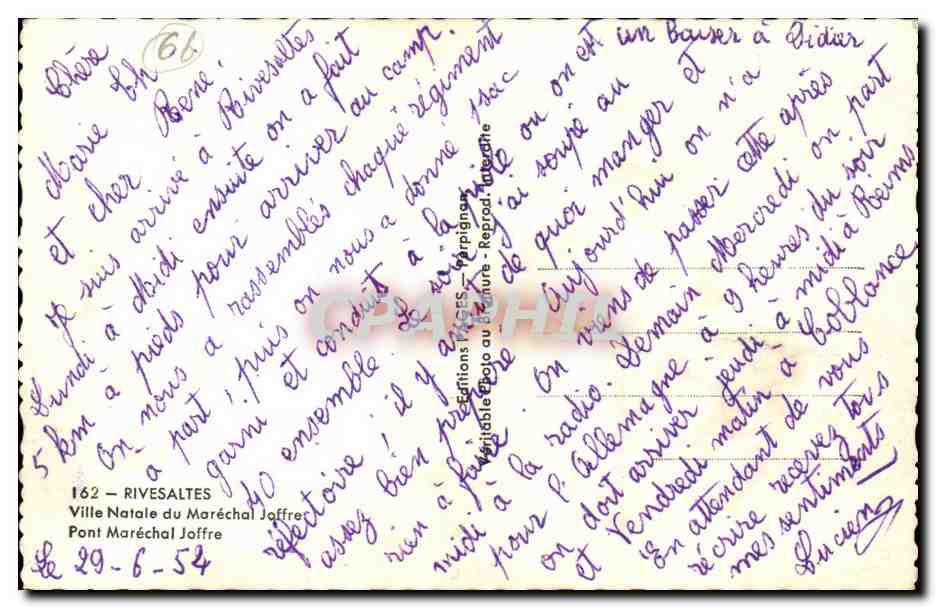 61
un baiser à Didier
Chère
Marie Ch
et cher René.
Je suis arrivé à Rivesaltes
Lundi à Midi ensuite on a fait
5 km à pieds pour arriver au camp.
On nous a rassemblés chaque régiment
a part, puis on nous a donné 1 sac
garni et conduit à la ou on est
40 ensemble. Le soir j'ai soupé au
réfectoire! il y avait de quoi manger et
assez bien préparé. Aujourd'hui on n'a
rien à faire. On viens de passer cette après
midi à la radio. Demain Mercredi on part
pour l'Allemagne à 9 heures du soir
on doit arriver jeudi à midi à Reims
et Vendredi matin à Coblance
En attendant de vous
récrire recevez tous
mes sentiments
Lucien
162 — RIVESALTES
Ville Natale du Maréchal Joffre
Pont Maréchal Joffre
Le 29-6-54
Editions PAGES - Perpignan
Véritable Photo au Bromure - Reprod. Interdite
CPARPHIL